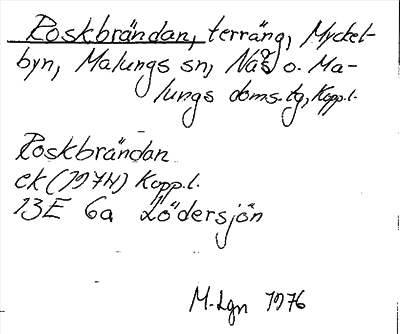 Roskbrändan, terräng, Myckel-
byn, Malungs sn, Nås o. Ma-
lungs doms.tg, Kopp.l.
Roskbrändan
ek (1974) Kopp.l.
13E 6a Lödersjön
M-Lgn 1976